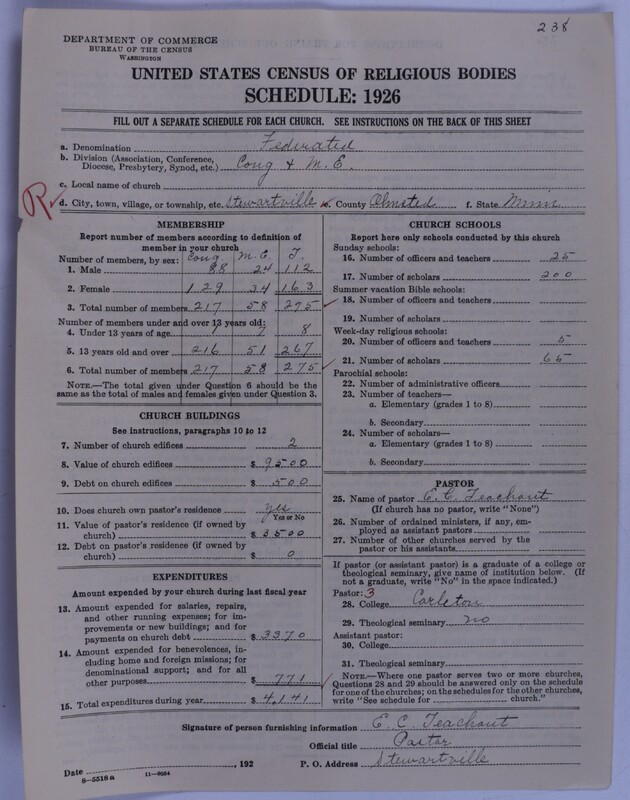 238
DEPARTMENT OF COMMERCE
BUREAU OF THE CENSUS
WASHINGTON
UNITED STATES CENSUS OF RELIGIOUS BODIES
SCHEDULE: 1926
FILL OUT A SEPARATE SCHEDULE FOR EACH CHURCH. SEE INSTRUCTIONS ON THE BACK OF THIS SHEET
a. Denomination Federated
b. Division (Association, Conference, Diocese, Presbytery, Synod, etc.) Cong & M.E.
c. Local name of church
R
d. City, town, village, or township, etc. Stewartville e. County Olmsted f. State Minn
MEMBERSHIP
Report number of members according to definition of
member in your church
Number of members, by sex: Cong M.E. T.
1. Male 88 24 112
2. Female 129 34 163
3. Total number of members 217 58 275
Number of members under and over 13 years old:
4. Under 13 years of age 1 7 8
5. 13 years old and over 216 51 267
6. Total number of members 217 58 275
NOTE.—The total given under Question 6 should be
same as the total of males and females given under Question 3.
CHURCH BUILDINGS
See instructions, paragraphs 10 to 12
7. Number of church edifices 2
8. Value of church edifices $ 9500
9. Debt on church edifices $ 500
10. Does church own pastor's residence yes
Yes or No
11. Value of pastor's residence (if owned by
church) $ 3500
12. Debt on pastor's residence (if owned by
church) $ 0
EXPENDITURES
Amount expended by your church during last fiscal year
13. Amount expended for salaries, repairs,
and other running expenses; for im-
provements or new buildings; and for
payments on church debt $ 3370
14. Amount expended for benevolences, in-
cluding home and foreign missions; for
denominational support; and for all
other purposes $ 771
15. Total expenditures during year $ 4,141
CHURCH SCHOOLS
Report here only schools conducted by this church
Sunday schools:
16. Number of officers and teachers 25
17. Number of scholars 200
Summer vacation Bible schools:
18. Number of officers and teachers
19. Number of scholars
Week-day religious schools:
20. Number of officers and teachers 5
21. Number of scholars 65
Parochial schools:
22. Number of administrative officers
23. Number of teachers—
a. Elementary (grades 1 to 8)
b. Secondary
24. Number of scholars—
a. Elementary (grades 1 to 8)
b. Secondary
PASTOR
25. Name of pastor E. C. Teachout
(If church has no pastor, write "None")
26. Number of ordained ministers, if any, em-
ployed as assistant pastors
27. Number of other churches served by the
pastor or his assistants
If pastor (or assistant pastor) is a graduate of a college or
theological seminary, give name of institution below. (If
not a graduate, write "No" in the space indicated.)
Pastor: 3
28. College Carleton
29. Theological seminary no
Assistant pastor:
30. College
31. Theological seminary
NOTE.—Where one pastor serves two or more churches,
Questions 28 and 29 should be answered only on the schedule
for one of the churches; on the schedules for the other churches,
write "See schedule for church."
Signature of person furnishing information E. C. Teachout
Official title Pastor
Date , 192 P. O. Address Stewartville
8—5518a 11—9034